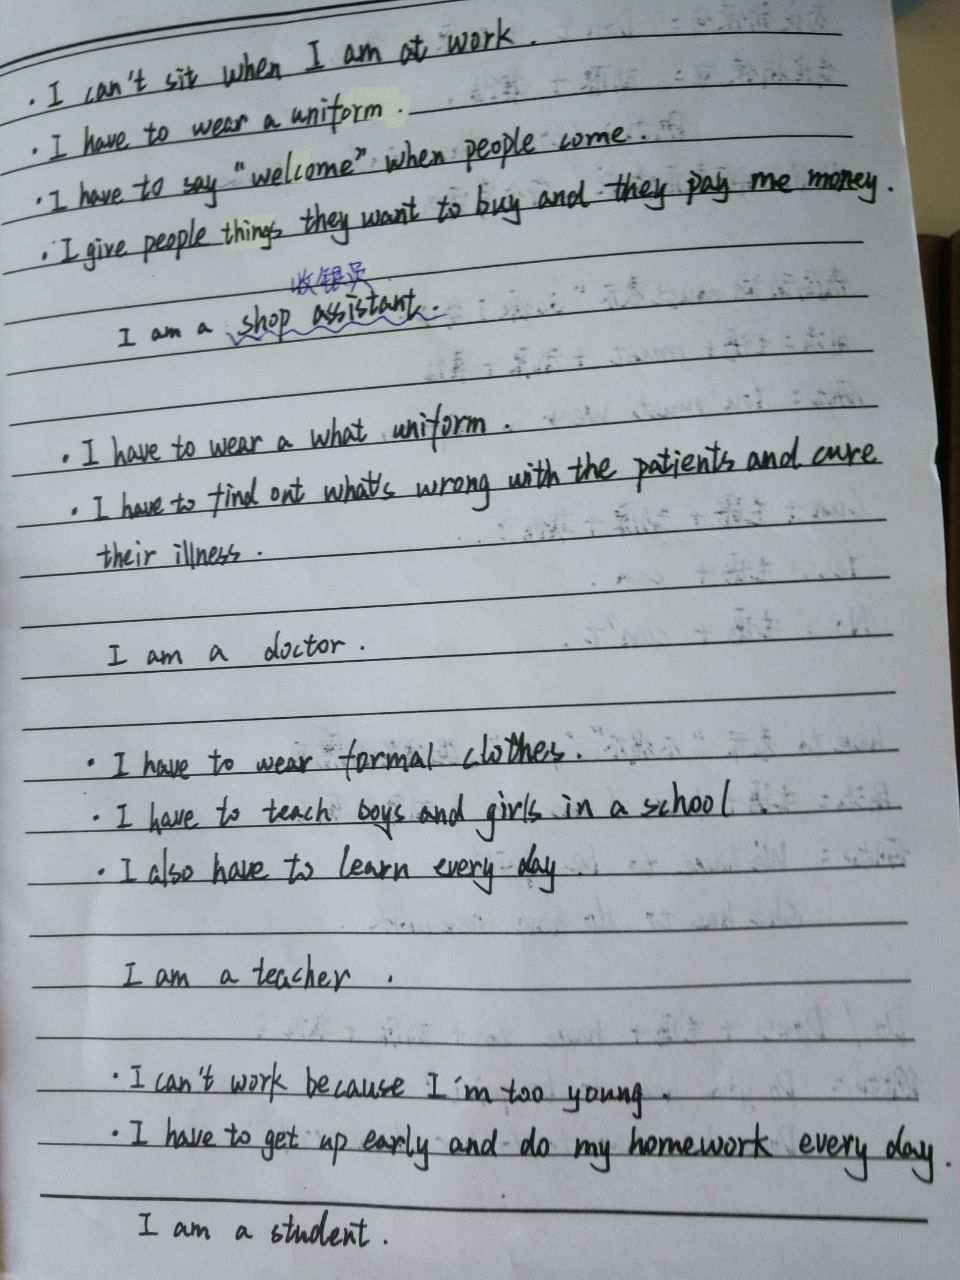 · I can't sit when I am at work.
· I have to wear a uniform.
· I have to say "welcome" when people come.
· I give people things they want to buy and they pay me money.
收银员
I am a shop assistant.
· I have to wear a what uniform.
· I have to find out what's wrong with the patients and cure
their illness.
I am a doctor.
· I have to wear formal clothes.
· I have to teach boys and girls in a school
· I also have to learn every day
I am a teacher.
· I can't work because I'm too young.
· I have to get up early and do my homework every day.
I am a student.